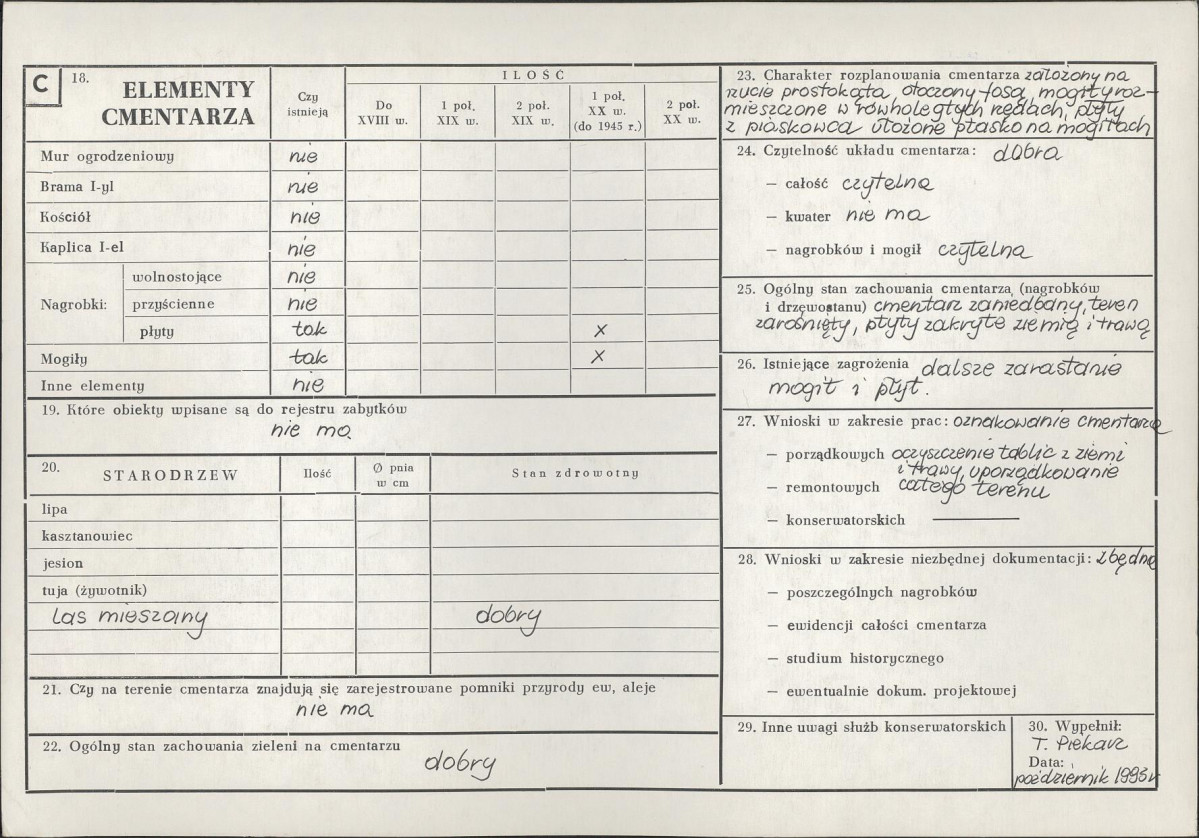 C
18. ELEMENTY
CMENTARZA
Czy
istnieją
ILOŚĆ
Do
XVIII w.
1 poł.
XIX w.
2 poł.
XIX w.
1 poł.
XX w.
(do 1945 r.)
2 poł.
XX w.
Mur ogrodzeniowy nie
Brama I-yl nie
Kościół nie
Kaplica I-el nie
Nagrobki:
wolnostojące nie
przyścienne nie
płyty tak x
Mogiły tak x
Inne elementy nie
19. Które obiekty wpisane są do rejestru zabytków
nie ma
20. STARODRZEW
Ilość
Ø pnia
w cm
Stan zdrowotny
lipa
kasztanowiec
jesion
tuja (żywotnik)
las mieszany dobry
21. Czy na terenie cmentarza znajdują się zarejestrowane pomniki przyrody ew, aleje
nie ma
22. Ogólny stan zachowania zieleni na cmentarzu
dobry
23. Charakter rozplanowania cmentarza założony na
rzucie prostokąta, otoczony fosą, mogiły roz-
mieszczone w równoległych rzędach, płyty
z piaskowca ułożone płasko na mogiłach
24. Czytelność układu cmentarza: dobra
— całość czytelna
— kwater nie ma
— nagrobków i mogił czytelna
25. Ogólny stan zachowania cmentarza (nagrobków
i drzewostanu) cmentarz zaniedbany, teren
zarośnięty, płyty zakryte ziemią i trawą
26. Istniejące zagrożenia dalsze zarastanie
mogił i płyt.
27. Wnioski w zakresie prac: oznakowanie cmentarza
— porządkowych oczyszczenie tablic z ziemi
i trawy, uporządkowanie
— remontowych całego terenu
— konserwatorskich —
28. Wnioski w zakresie niezbędnej dokumentacji: zbędne
— poszczególnych nagrobków
— ewidencji całości cmentarza
— studium historycznego
— ewentualnie dokum. projektowej
29. Inne uwagi służb konserwatorskich
30. Wypełnił:
T. Piekarz
Data:
październik 1993 r